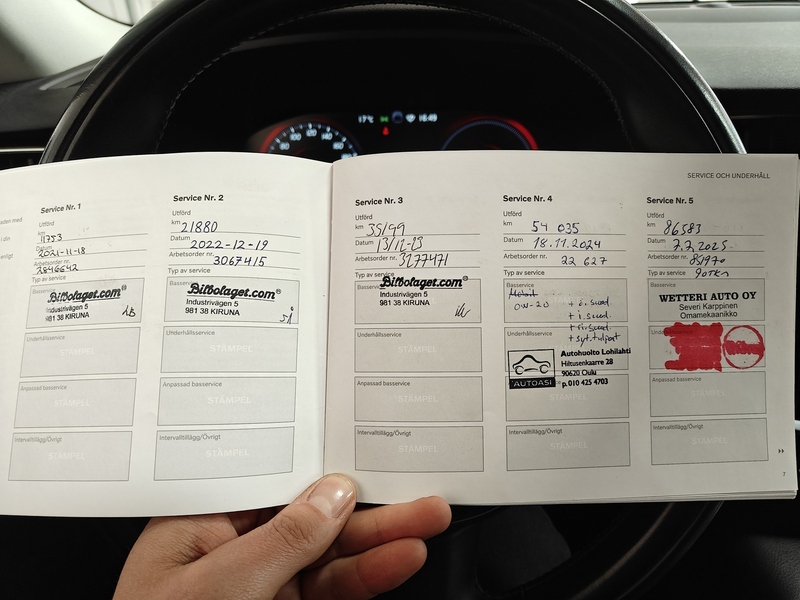 17°C 16:49
80 100 120 140
SERVICE OCH UNDERHÅLL
Service Nr. 1
Utförd
km 11753
Datum 2021-11-18
Arbetsorder nr. 2846642
Typ av service
Basservice
Bilbolaget.com®
Industrivägen 5
981 38 KIRUNA
Underhållsservice
STÄMPEL
Anpassad basservice
STÄMPEL
Intervalltillägg/Övrigt
STÄMPEL
Service Nr. 2
Utförd
km 21880
Datum 2022-12-19
Arbetsorder nr. 3067415
Typ av service
Basservice
Bilbolaget.com®
Industrivägen 5
981 38 KIRUNA
Underhållsservice
STÄMPEL
Anpassad basservice
STÄMPEL
Intervalltillägg/Övrigt
STÄMPEL
Service Nr. 3
Utförd
km 35199
Datum 13/12-23
Arbetsorder nr. 3277471
Typ av service
Basservice
Bilbolaget.com®
Industrivägen 5
981 38 KIRUNA
Underhållsservice
STÄMPEL
Anpassad basservice
STÄMPEL
Intervalltillägg/Övrigt
STÄMPEL
Service Nr. 4
Utförd
km 54 035
Datum 18.11.2024
Arbetsorder nr. 22 627
Typ av service
Basservice
0W-20
+ i.suod.
+ syt.tulpat
Autohuolto Lohilahti
Hiltusenkaarre 28
90620 Oulu
p.010 425 4703
AUTOASI
Anpassad basservice
STÄMPEL
Intervalltillägg/Övrigt
STÄMPEL
Service Nr. 5
Utförd
km 86583
Datum 7.7.2025
Arbetsorder nr.
Typ av service 90TKM
Basservice
WETTERI AUTO OY
Severi Karppinen
Omamekaanikko
Underhållsservice
Anpassad basservice
STÄMPEL
Intervalltillägg/Övrigt
STÄMPEL
7